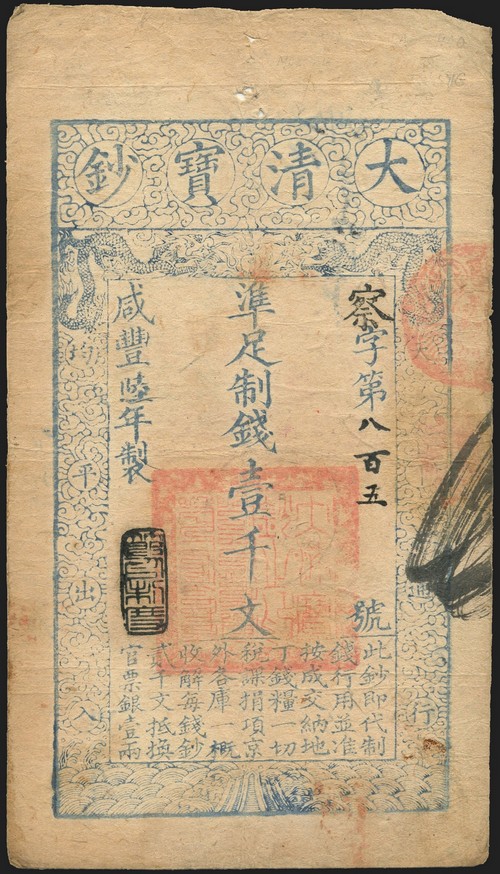 大清寶鈔
天下通行
察字第八百五號
準足制錢壹千文
咸豐陸年製
均平出入
此鈔即代制
錢行用並准
按成交納地
丁錢糧一切
稅課捐項京
外各庫一概
收解每錢鈔
貳千文抵換
官票銀壹兩